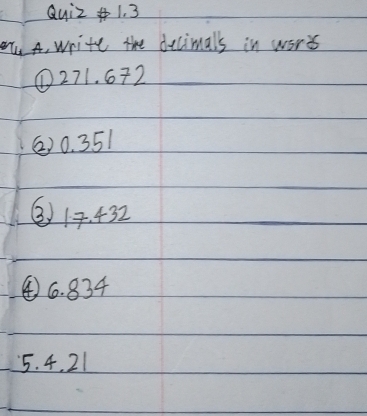 Quiz # 1.3
A. Write the decimals in words
① 271.672
② 0.351
③ 17.432
④ 6.834
5. 4.21